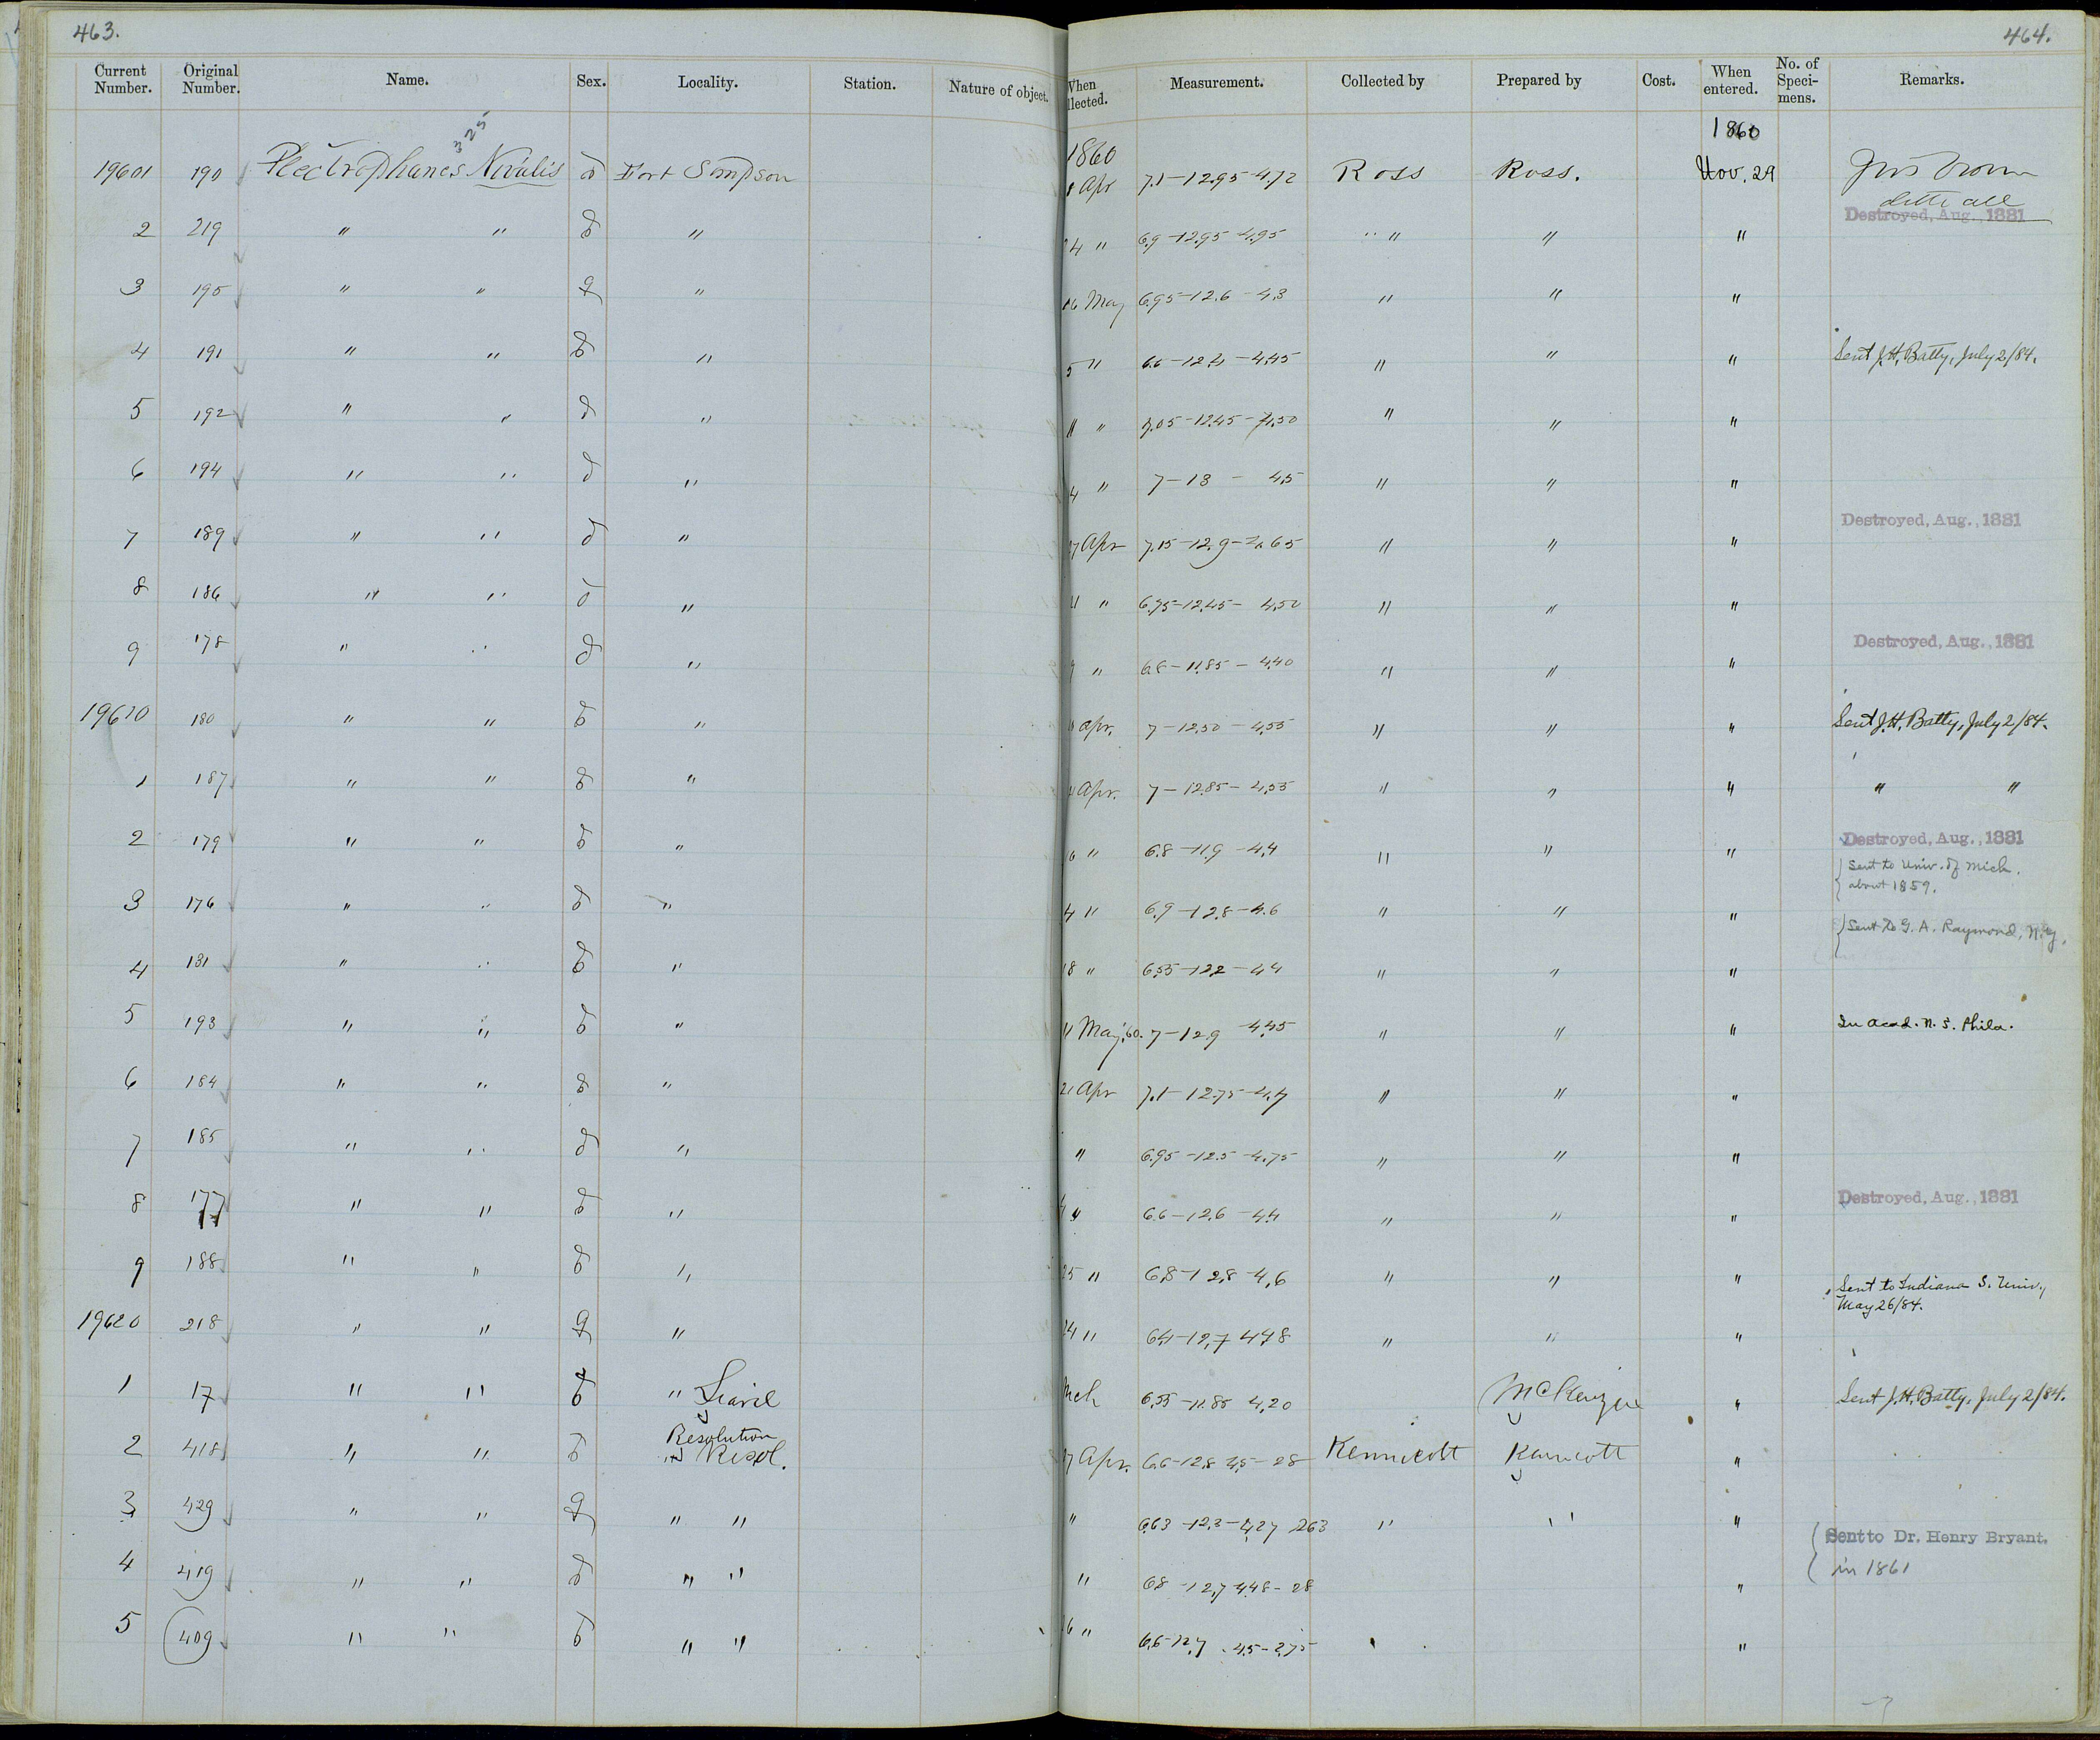 463.
464.
Current Number. Original Number. Name. Sex. Locality. Station. Nature of object. When llected. Measurement. Collected by Prepared by Cost. When entered. No. of Speci-mens. Remarks.
325
1860 1860
19601 190 Plectrophanes Nivalis ♂ Fort Simpson Apr 7.1-12.95-4.72 Ross Ross. Nov. 29
ditto all
Destroyed, Aug., 1881
2 219 " " ♂ " 24 " 6.9-12.95-4.95 " " "
3 195 " " ♀ " 16 May 6.95-12.6-4.3 " " "
4 191 " " ♂ " 5 " 6.6-12.4-4.45 " " " Sent J.H. Batty, July 2/84.
5 192 " " ♂ " 11 " 7.05-12.45-4.50 " " "
6 194 " " ♂ " 4 " 7-13-4.5 " " "
Destroyed, Aug., 1881
7 189 " " ♂ " 27 Apr 7.15-12.9-4.65 " " "
8 186 " " ♂ " 21 " 6.95-12.45-4.50 " " "
Destroyed, Aug., 1881
9 178 " " ♂ " 9 " 6.8-11.85-4.40 " " "
19610 180 " " ♂ " Apr. 7-12.50-4.55 " " " Sent J.H. Batty, July 2/84.
1 187 " " ♂ " Apr. 7-12.85-4.55 " " " " "
2 179 " " ♂ " 16 " 6.8-11.9-4.4 " " " Destroyed, Aug., 1881
Sent to Univ. of Mich.
about 1859.
3 176 " " ♂ " 4 " 6.9-12.8-4.6 " " "
Sent to G. A. Raymond, N.Y.
4 181 " " ♂ " 18 " 6.55-12.2-4.4 " " "
5 193 " " ♂ " 11 May, 60. 7-12.9-4.45 " " " In Acad. N. S. Phila.
6 184 " " ♂ " 21 Apr 7.1-12.75-4.7 " " "
7 185 " " ♂ " " 6.95-12.5-4.75 " " "
8 177 " " ♂ " 4 " 6.6-12.6-4.4 " " " Destroyed, Aug., 1881
9 188 " " ♂ " 25 " 6.8-12.8-4.6 " " "
Sent to Indiana S. Univ.,
May 26/84.
19620 218 " " ♀ " 24 " 6.4-12.7 4.48 " " "
1 17 " " ♂ " Liard Mch 6.55-11.85 4.20 McKenzie " Sent J.H. Batty, July 2/84.
Resolution
2 418 " " ♂ " Resol. 17 Apr. 6.6-12.8 4.5-28 Kennicott Kennicott "
3 429 " " ♀ " " " 6.63-12.3-4.27 263 " " "
Sent to Dr. Henry Bryant.
in 1861
4 419 " " ♂ " " " 6.8-12.7 4.48-28 "
5 409 " " ♂ " " 16 " 6.6-12.7 4.5-2.75 "